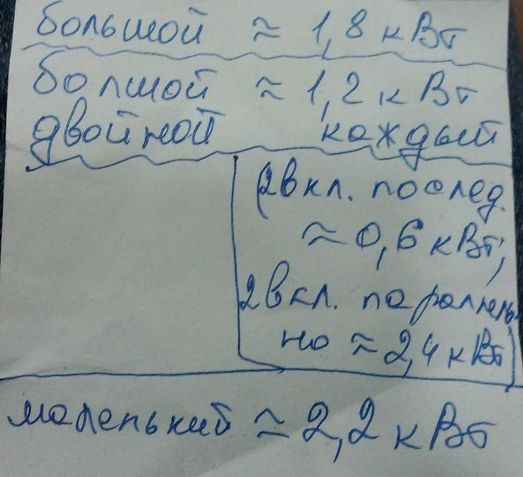 большой ≈ 1,8 кВт
болшой ≈ 1,2 кВт
двойной каждый
(2вкл. послед.
≈ 0,6 кВт;
2вкл. параллель-
но ≈ 2,4 кВт)
маленький ≈ 2,2 кВт